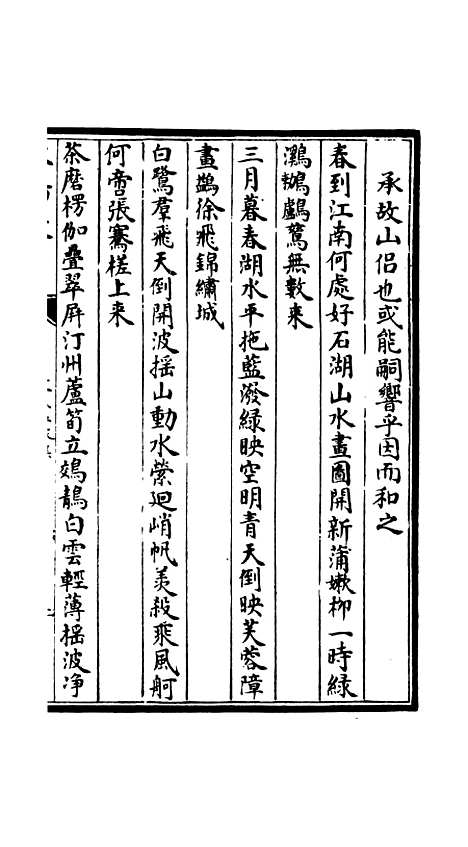 承故山侶也或能嗣響乎因而和之
春到江南何處好石湖山水畫圖開新蒲嫰柳一時緑
鸂𪆟鸕鶿無數来
三月暮春湖水平拖藍潑緑映空明青天倒映芙蓉障
畫鷁徐飛錦繡城
白鷺羣飛天倒開波揺山動水縈廻峭帆羡殺乗風舸
何啻張騫槎上来
茶磨楞伽疊翠屛汀州蘆筍立鵁鶄白雲輕薄揺波净